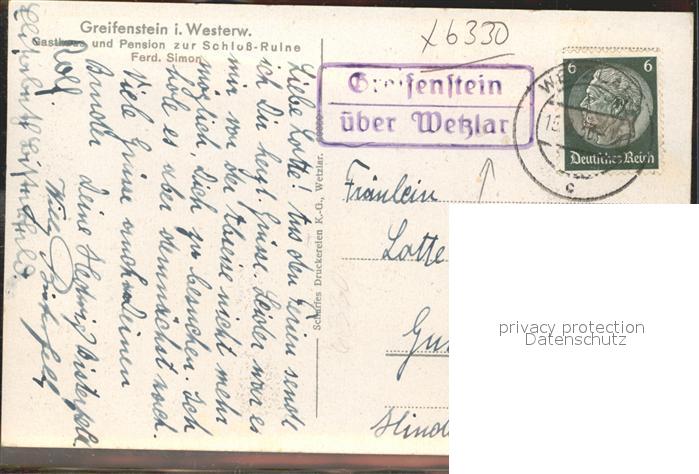 Greifenstein i. Westerw.
Gasthaus und Pension zur Schloß-Ruine
Ferd. Simon
x6330
Greifenstein
über Wetzlar
6 6
Deutsches Reich
c
Liebe Lotte! Aus den Ferien sende
ich Dir herzl. Grüße. Leider war es
mir von der Ebene nicht mehr
möglich, Dich zu besuchen. Ich
hole es aber demnächst nach.
Viele Grüße auch Deinen
Bruder Deine Hedwig
Rolf
Willy
Scharfes Druckereien K.-G., Wetzlar.
Fräulein
Lotte
privacy protection
Datenschutz